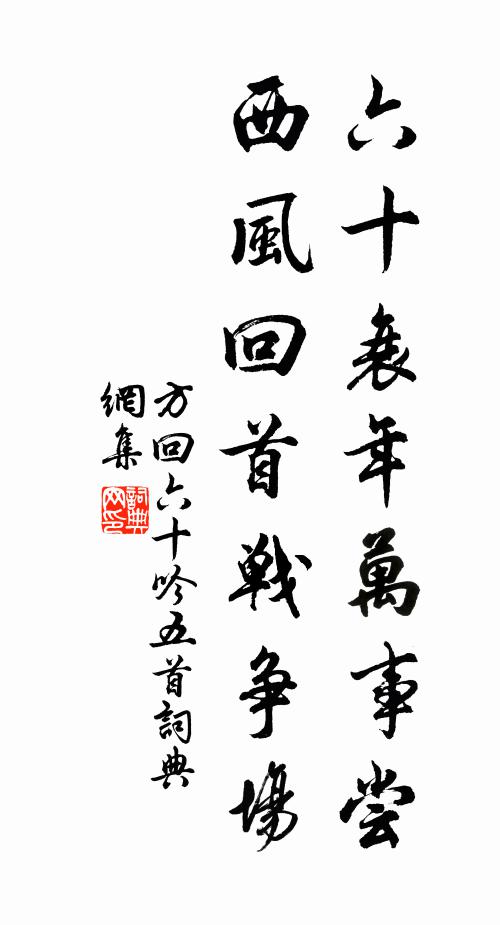 六十衰年萬事嘗
西風回首戰爭場
方回六十吟五首詞典
網集
詞典
网印